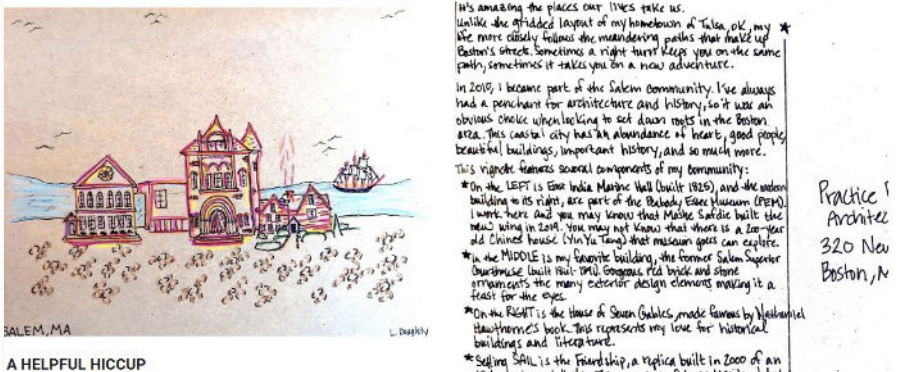 SALEM, MA
L. Doughty
A HELPFUL HICCUP
It's amazing the places our lives take us.
Unlike the gridded layout of my hometown of Tulsa, OK, my
life more closely follows the meandering paths that make up
Boston's streets. Sometimes a right turn keeps you on the same
path, sometimes it takes you on a new adventure.
In 2010, I became part of the Salem community. I've always
had a penchant for architecture and history, so it was an
obvious choice when looking to set down roots in the Boston
area. This coastal city has an abundance of heart, good people,
beautiful buildings, important history, and so much more.
This vignette features several components of my community:
*On the LEFT is East India Marine Hall (built 1825), and the modern
building to its right, are part of the Peabody Essex Museum (PEM).
I work here and you may know that Moshe Safdie built the
new wing in 2019. You may not know that there is a 200-year
old Chinese house (Yin Yu Tang) that museum goers can explore.
*In the MIDDLE is my favorite building, the former Salem Superior
Courthouse (built 1861-). Gorgeous red brick and stone
ornaments the many exterior design elements making it a
feast for the eyes.
*On the RIGHT is the House of Seven Gables, made famous by Nathaniel
Hawthorne's book. This represents my love for historical
buildings and literature.
*Setting SAIL is the Friendship, a replica built in 2000 of an
*
Practice
Architec
320 New
Boston, M